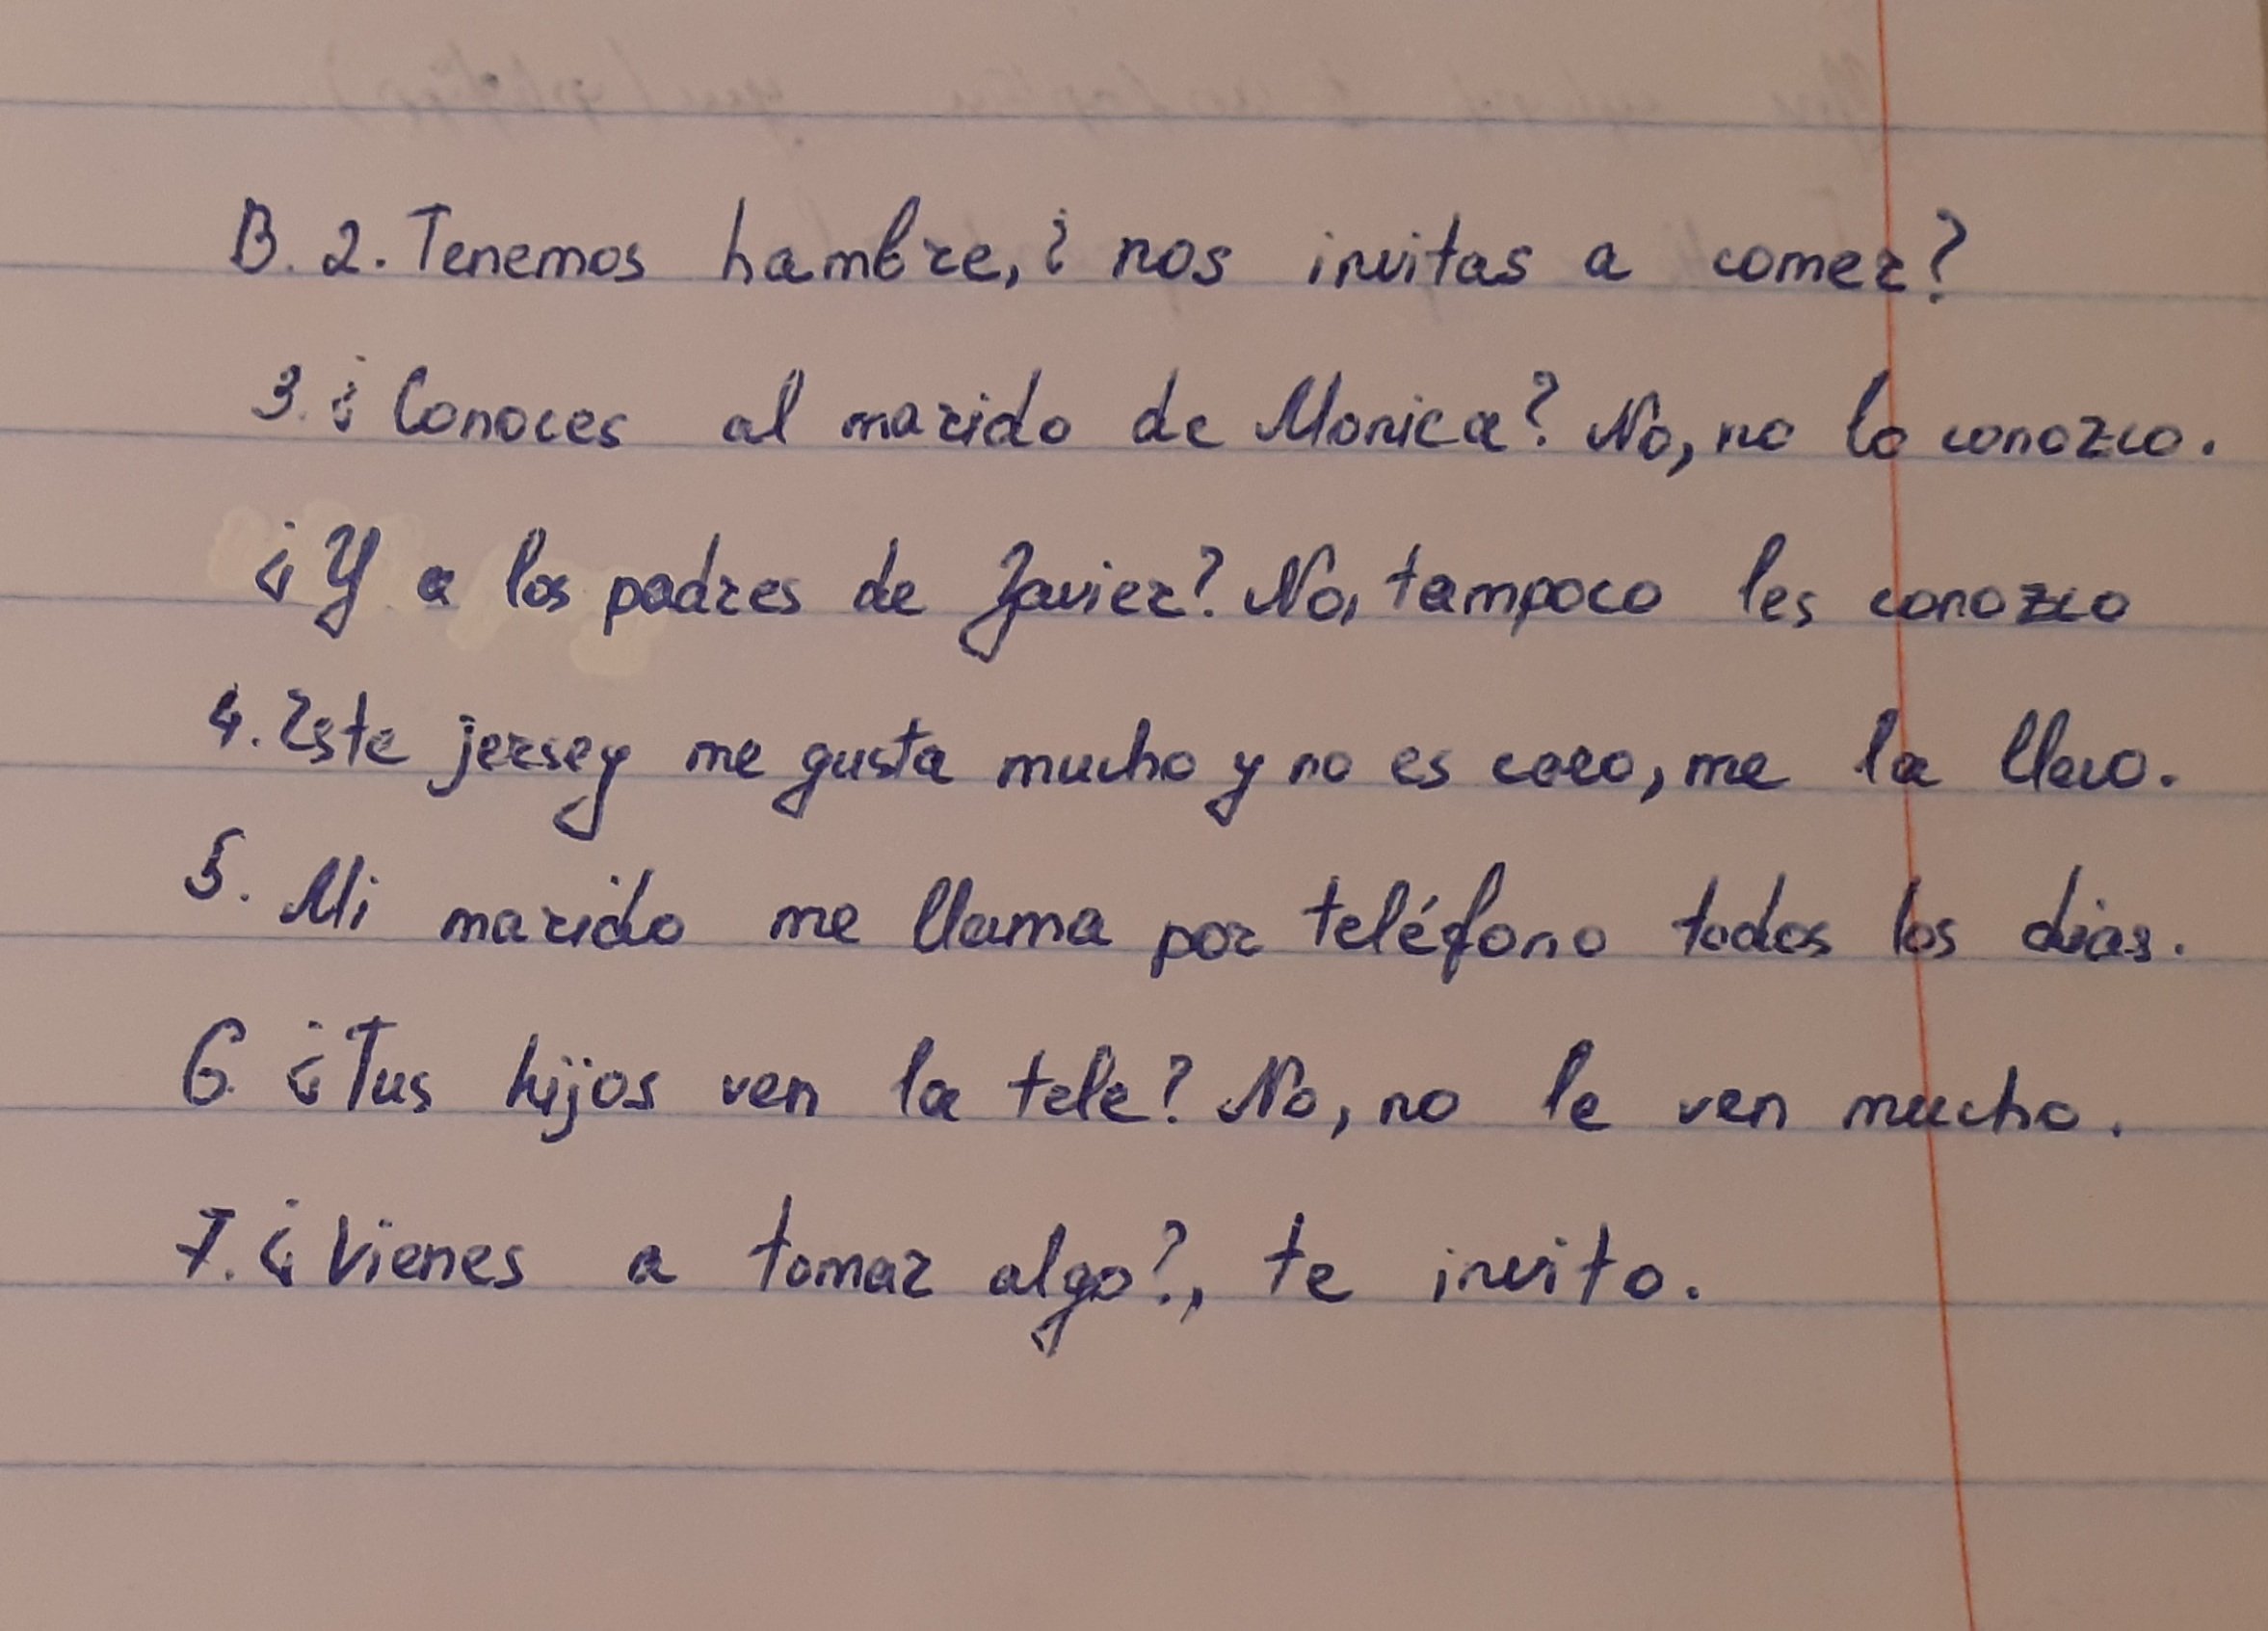 B. 2. Tenemos hambre, ¿ nos invitas a comer?
3. ¿ Conoces al marido de Monica? No, no lo conozco.
¿ Y a los padres de Javier? No, tampoco les conozco
4. Este jersey me gusta mucho y no es caro, me la llevo.
5. Mi marido me llama por teléfono todos los días.
6. ¿ Tus hijos ven la tele? No, no le ven mucho.
7. ¿ Vienes a tomar algo?, te invito.